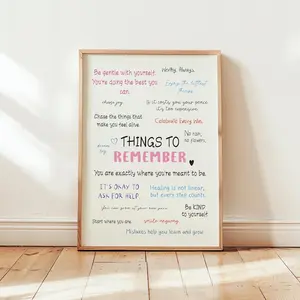 Be gentle with yourself.
You're doing the best you
can.
Worthy. Always.
Enjoy the littlest
things
choose joy
if it costs you your peace
it's too expensive.
Chase the things that
make you feel alive.
Celebrate Every Win.
No rain,
no flowers.
THINGS TO
REMEMBER
You are exactly where you're meant to be.
IT'S OKAY TO
ASK FOR HELP
Healing is not linear,
but every step counts
You can grow at your own pace.
Be KIND
to yourself
Start where you are.
smile anyway.
Mistakes help you learn and grow.